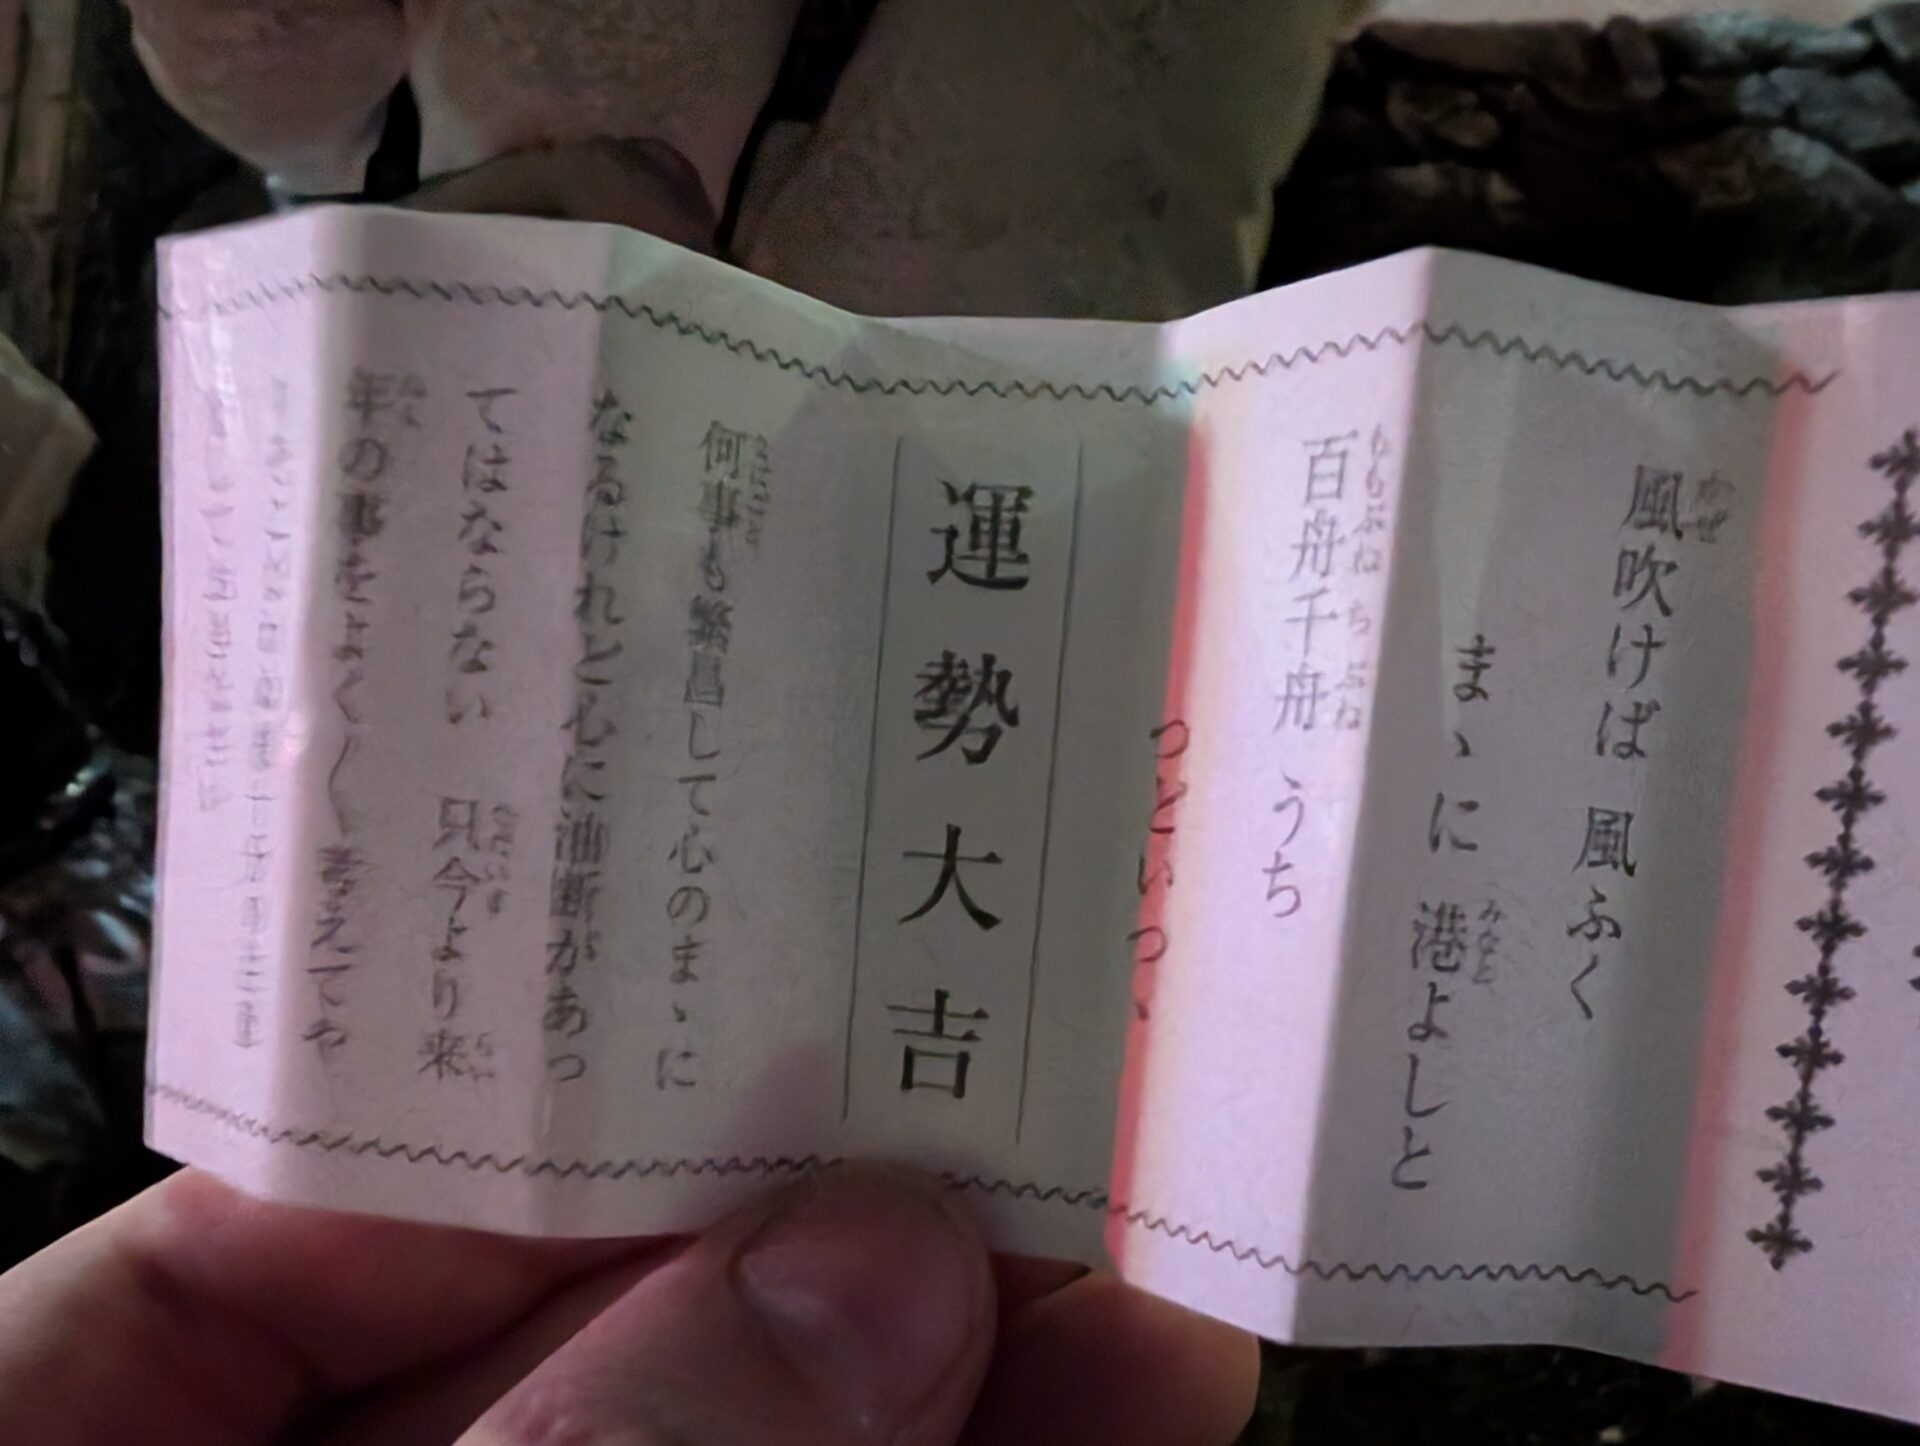 風吹けば 風ふく
まゝに 港よしと
百舟千舟 うち
つどいつゝ
運勢大吉
何事も繁昌して心のまゝに
なるけれど心に油断があっ
てはならない 只今より来
年の事をよく〱考えてや